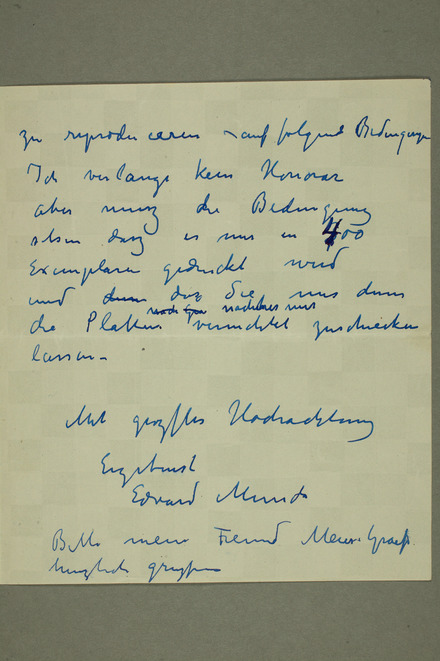 zu reproduceren auf folgende Bedingungen
Ich verlange kein Honorar
aber muss die Bedingung
dass es nur in 400
Exemplaren gedruckt wird
und dass Sie mir dann
nachher mir
die Platten vernichtet zuschicken
lassen –
Mit grösster Hochachtung
Ergebenst
Edvard Munch
Bitte mein Freund Meier-Graefe
herzlich grüssen